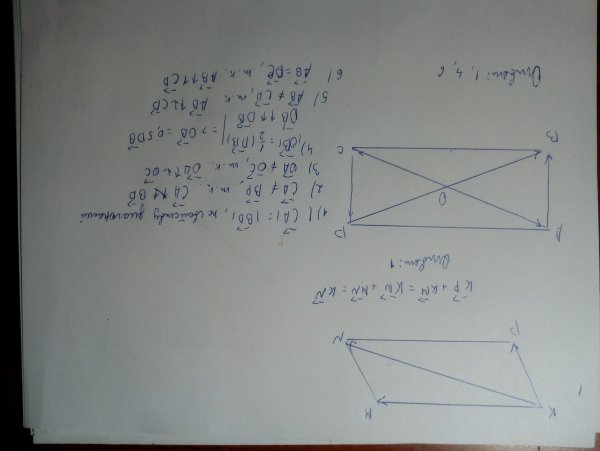 1.
K
M
P
N
KP + KM = KN + MN = KN
Ответ: 1
A
D
O
B
C
1) |CA| = |BD|, по свойству диагоналей
2) CA ≠ BD, т.к. CA ↑↓ BD
3) OA ≠ OC, т.к. OA ↑↓ OC
4) |OB| = 1/2 |DB|, | => OB = 0,5 DB
DB ↑↑ OB
5) AB ≠ CD, т.к. AB ↑↓ CD
6) AB = DC, т.к. AB ↑↑ CD
Ответ: 1, 4, 6